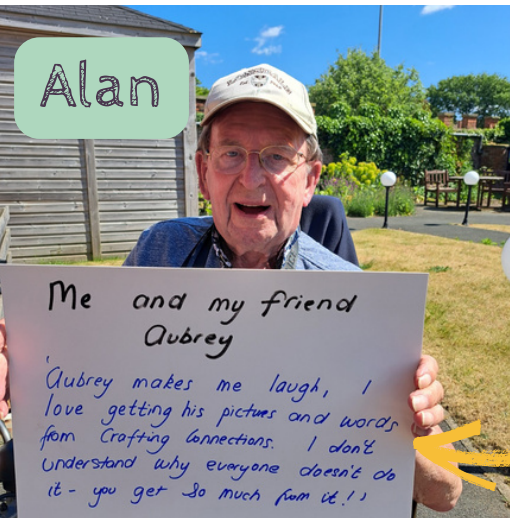 Alan
Me and my friend
Aubrey
'Aubrey makes me laugh, I
love getting his pictures and words
from Crafting Connections. I don't
understand why everyone doesn't do
it - you get so much from it!'